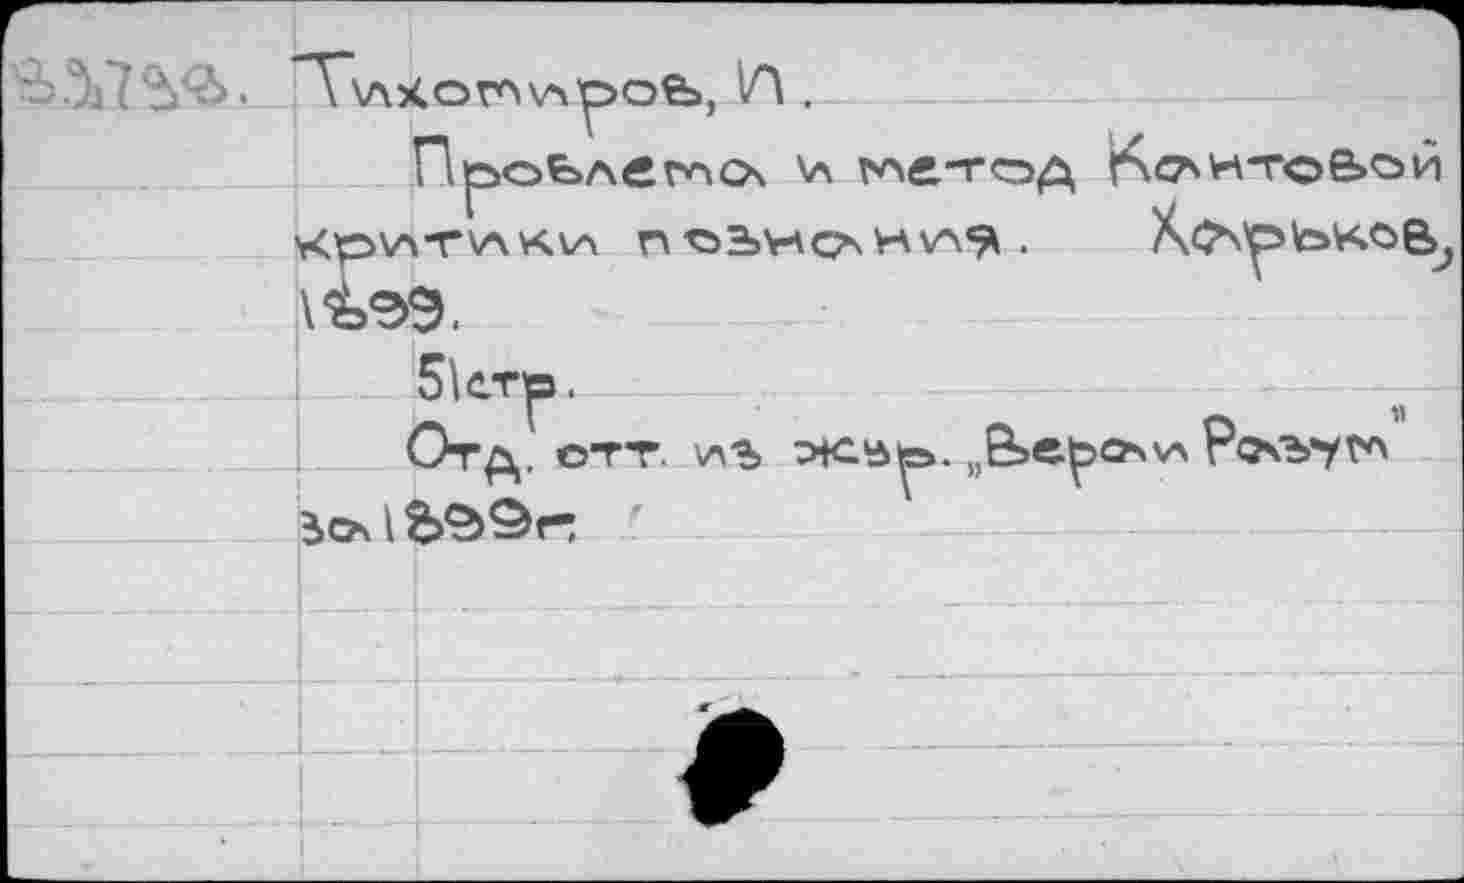 Тихомиров, И.
Проблема и метод Кантовой
критики познания. Харьков,
1899.
51стр.
Отд. отт. из жур. „Вера и Разум"
за 1899г.